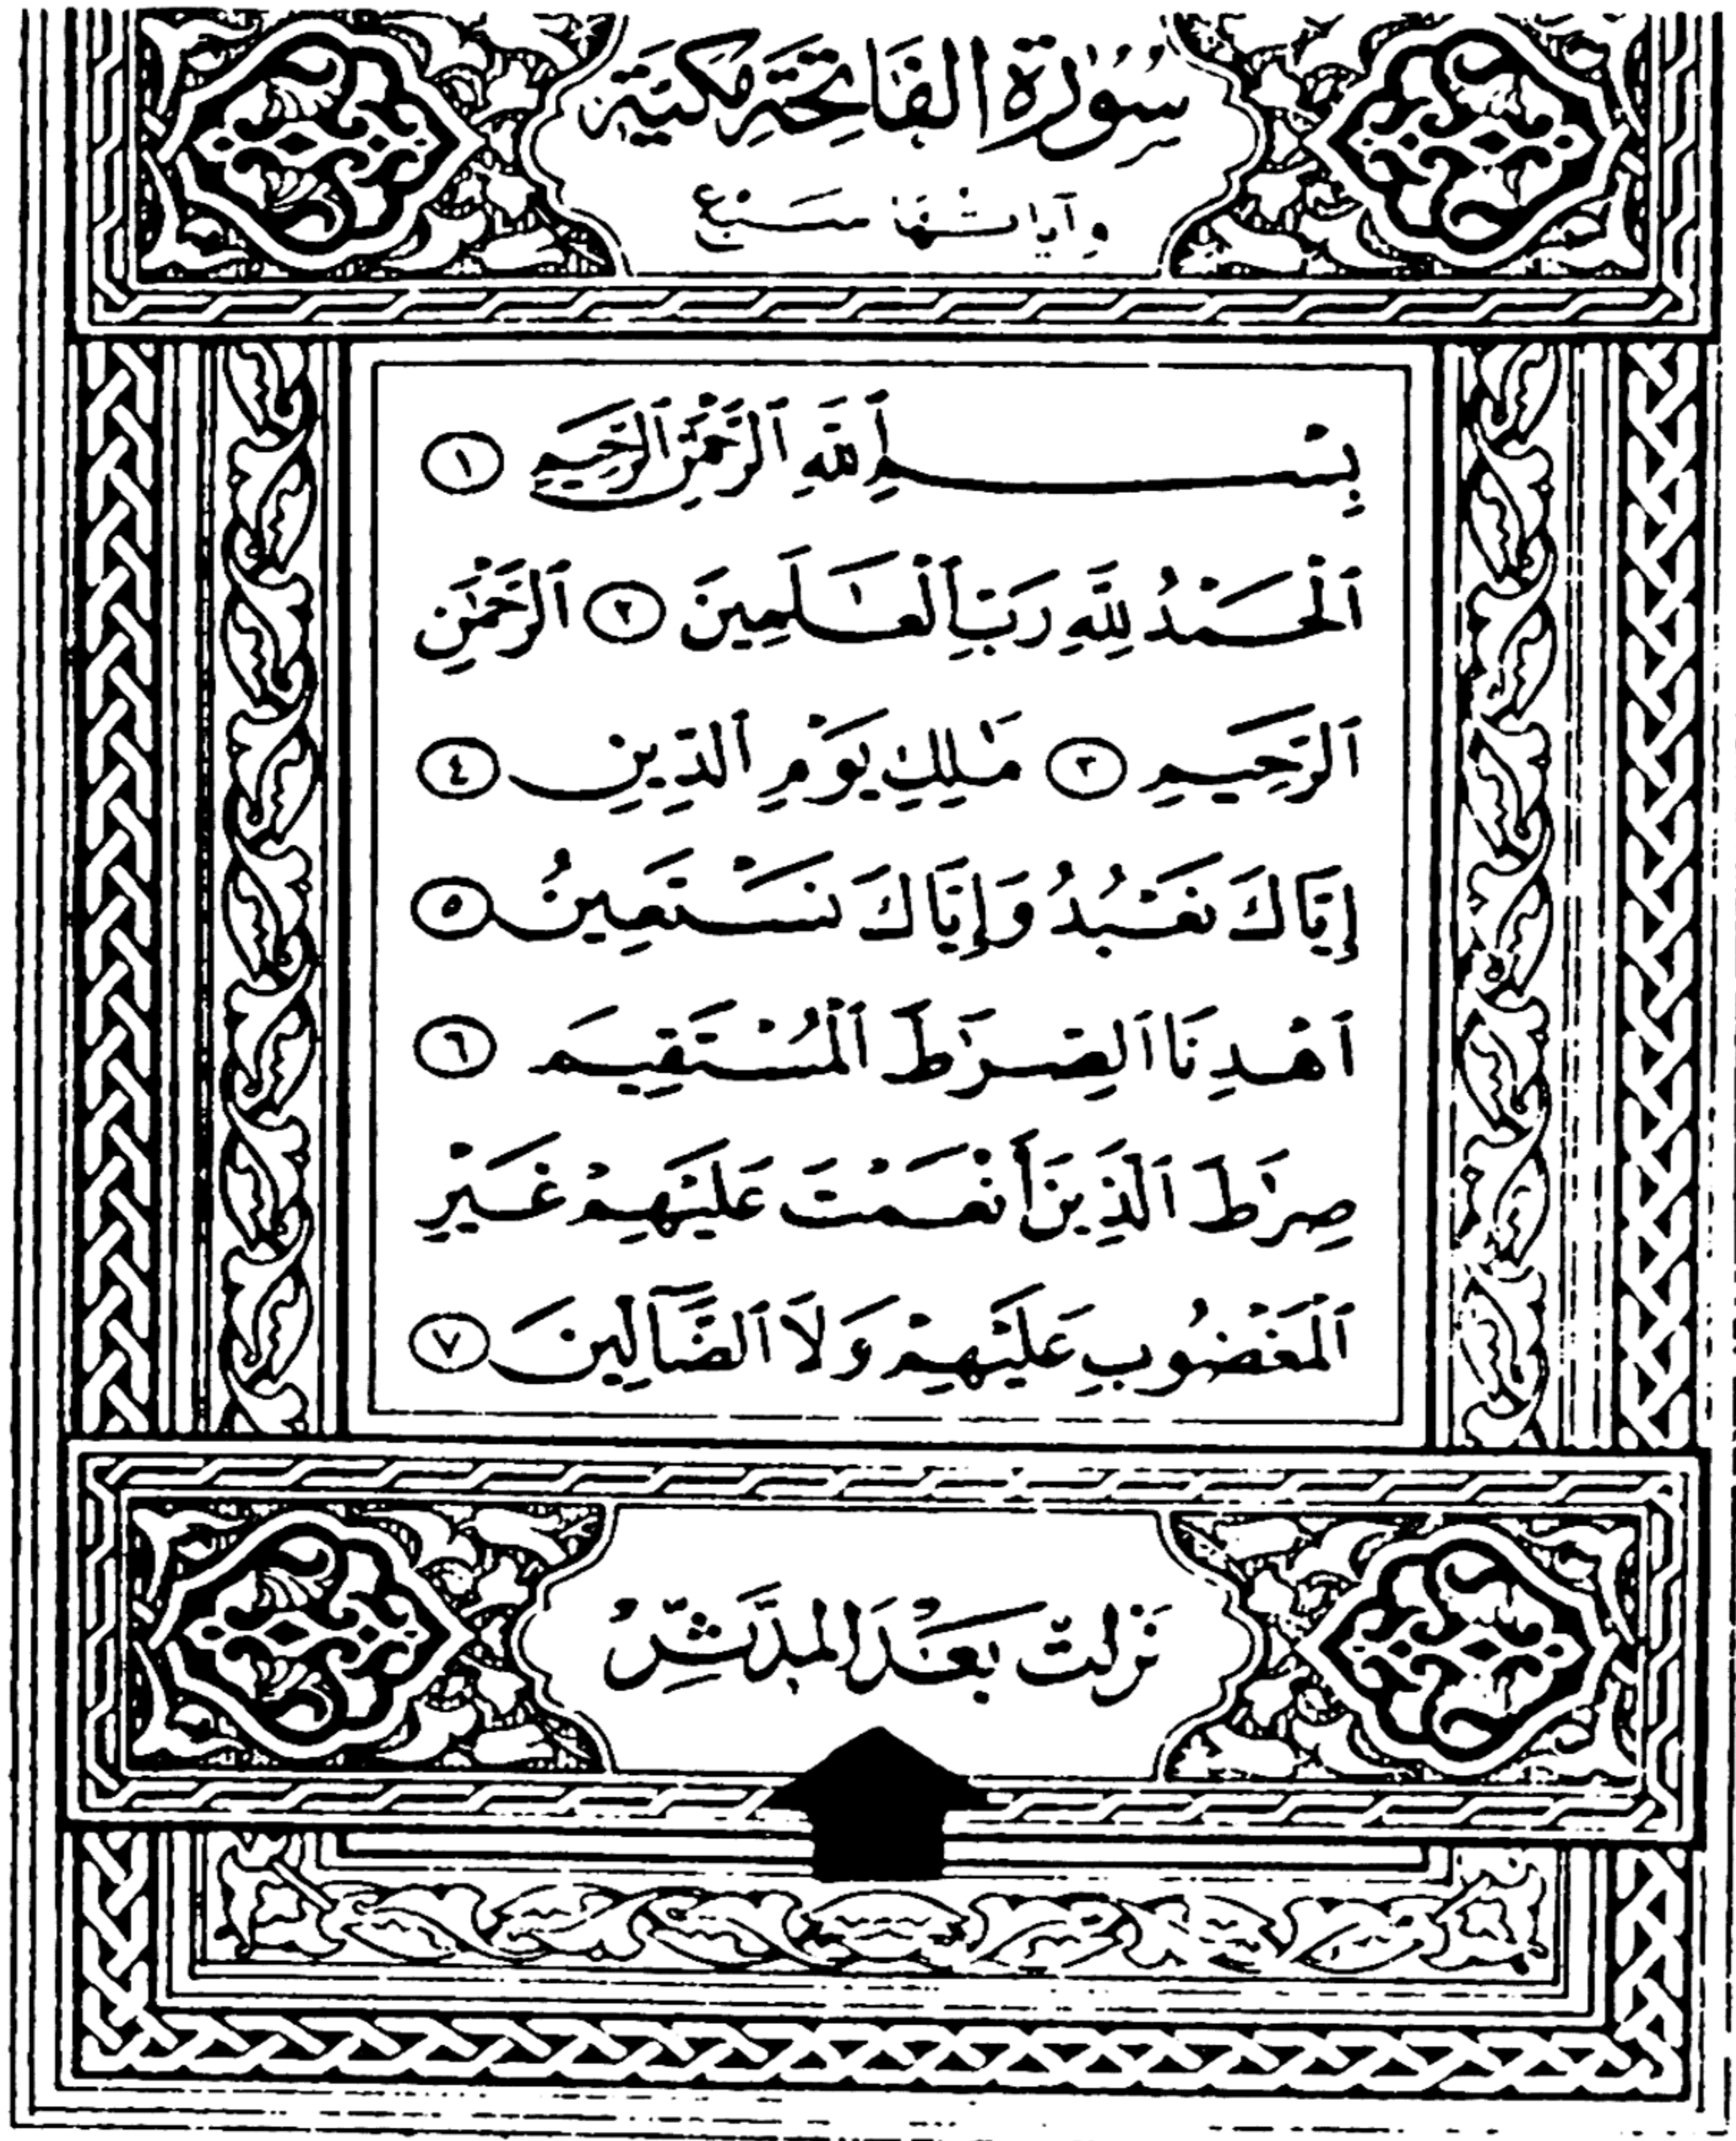 سُورَةُ الفَاتِحَةِ مَكِّيَّة
وآياتها سَبْع
بِسْمِ ٱللَّهِ ٱلرَّحْمَٰنِ ٱلرَّحِيمِ ١
ٱلْحَمْدُ لِلَّهِ رَبِّ ٱلْعَٰلَمِينَ ٢ ٱلرَّحْمَٰنِ
ٱلرَّحِيمِ ٣ مَٰلِكِ يَوْمِ ٱلدِّينِ ٤
إِيَّاكَ نَعْبُدُ وَإِيَّاكَ نَسْتَعِينُ ٥
ٱهْدِنَا ٱلصِّرَٰطَ ٱلْمُسْتَقِيمَ ٦
صِرَٰطَ ٱلَّذِينَ أَنْعَمْتَ عَلَيْهِمْ غَيْرِ
ٱلْمَغْضُوبِ عَلَيْهِمْ وَلَا ٱلضَّآلِّينَ ٧
نَزَلَتْ بَعْدَ المدَّثِّرُ